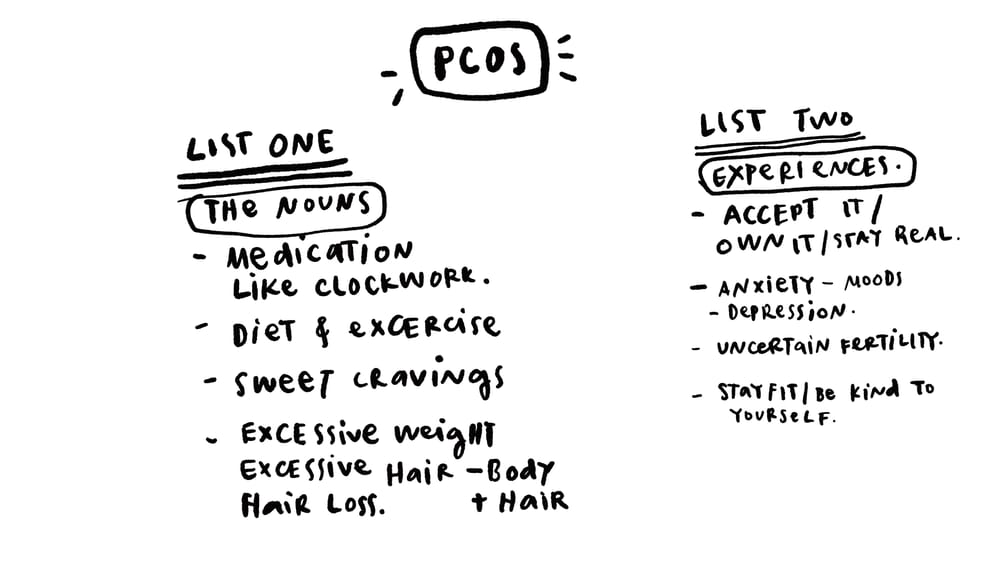 PCOS
LIST ONE
THE NOUNS
- MEDICATION
LIKE CLOCKWORK.
- DIET & EXCERCISE
- SWEET CRAVINGS
- EXCESSIVE WEIGHT
EXCESSIVE HAIR - BODY
HAIR LOSS. + HAIR
LIST TWO
EXPERIENCES.
- ACCEPT IT/
OWN IT/STAY REAL.
- ANXIETY - MOODS
- DEPRESSION.
- UNCERTAIN FERTILITY.
- STAY FIT/BE KIND TO
YOURSELF.